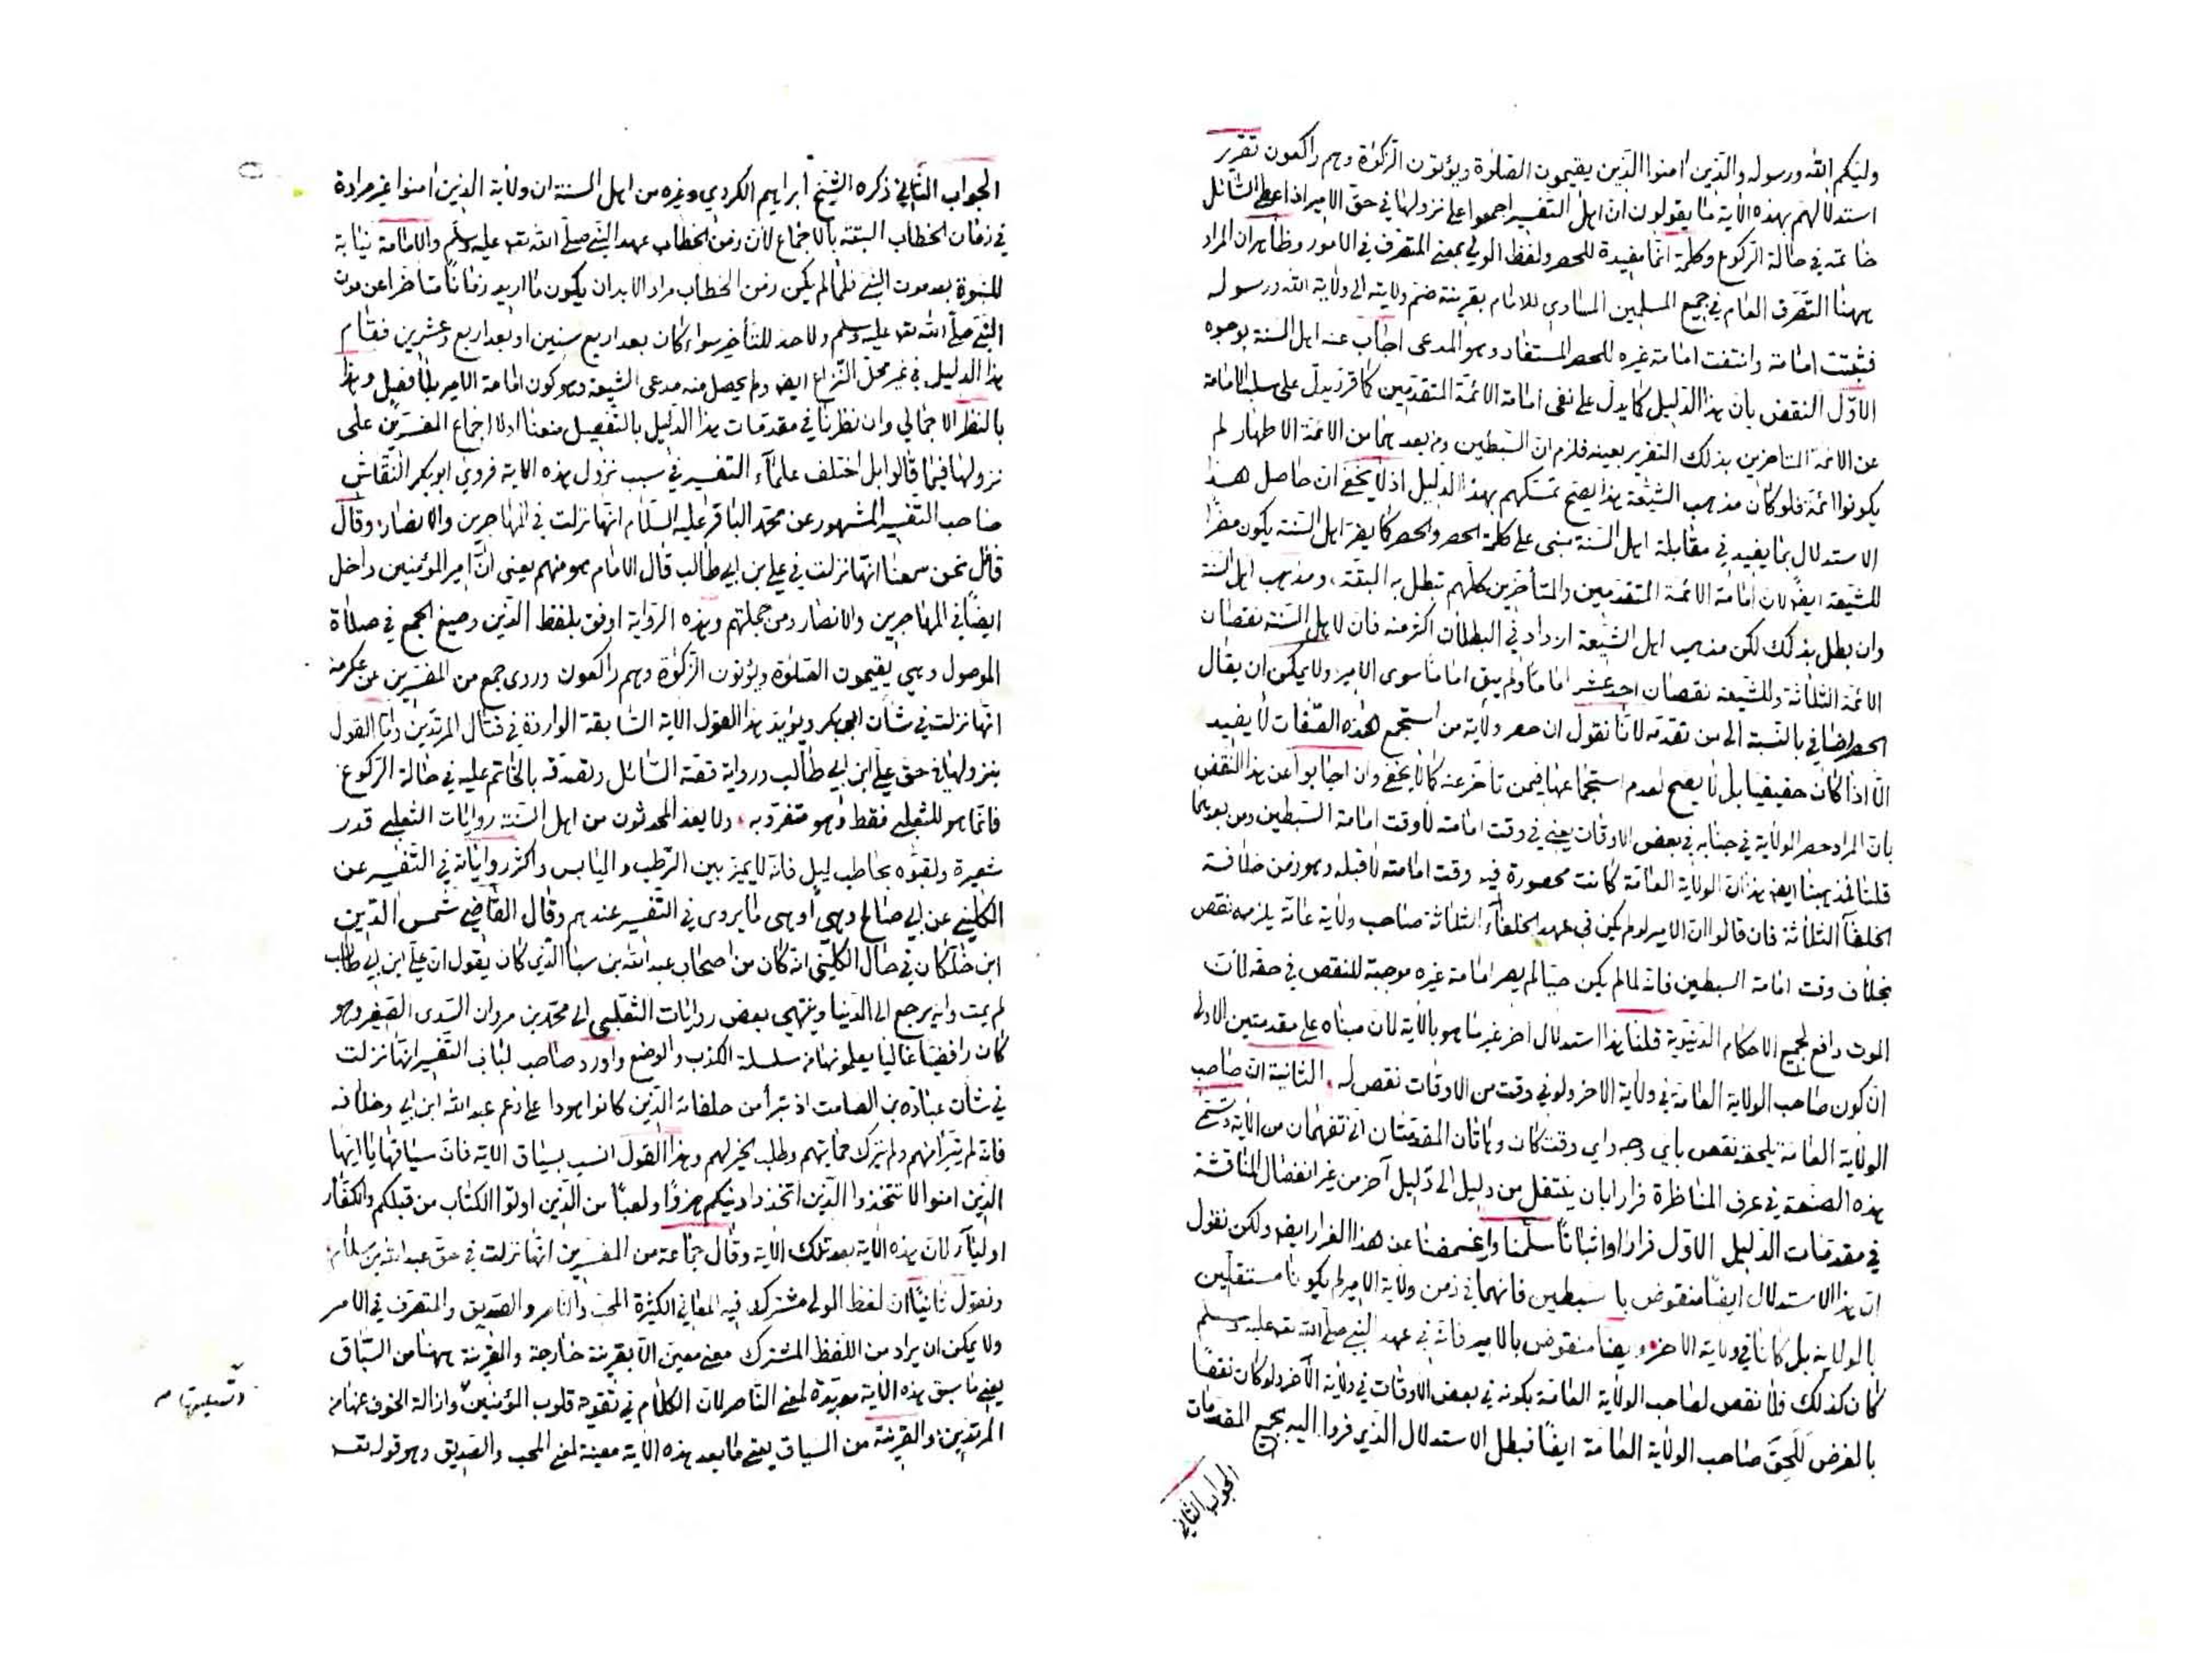 وليكم الله ورسوله والذين امنوا الذين يقيمون الصلوة ويؤتون الزكوة وهم راكعون تقرير
استدلالهم بهذه الاية ما يقولون ان اهل التفسير اجمعوا على نزولها في حق الامير اذ اعطى السائل
خاتمه في حالة الركوع وكلمة انما مفيدة للحصر ولفظ الولي بمعنى المتصرف في الامور وظاهر ان المراد
ههنا التصرف العام في جميع المسلمين المساوي للامام بقرينة ضم ولايته الى ولاية الله ورسوله
فثبتت امامته وانتفت امامة غيره للحصر المستفاد وهو المدعى اجاب عنه اهل السنة بوجوه
الاول النقض بان هذا الدليل كما يدل على نفي امامة الائمة المتقدمين كما قرر يدل على سلب الامامة
عن الائمة المتاخرين بذلك التقرير بعينه فلزم ان السبطين ومن بعدهما من الائمة الاطهار لم
يكونوا ائمة فلو كان مذهب الشيعة هذا يصح تمسكهم بهذا الدليل اذ لا يخفى ان حاصل هذا
الاستدلال بما يفيد في مقابلة اهل السنة مبني على كلمة الحصر والحصر كما يضر اهل السنة يكون مضرا
للشيعة ايضا لان امامة الائمة المتقدمين والمتأخرين كلهم تبطل به البتة ومذهب اهل السنة
وان بطل بذلك لكن مذهب اهل الشيعة ازداد في البطلان اكثر منه فان لاهل السنة نقصان
الائمة الثلاثة وللشيعة نقصان احد عشر اماما ولم يبق اماما سوى الامير ولا يمكن ان يقال
الحصر اضافي بالنسبة الى من تقدمه لانا نقول ان حصر ولاية من استجمع هذه الصفات لا يفيد
الا اذا كان حقيقيا بل لا يصح لعدم استجماعها فيمن تأخر عنه كما لا يخفى وان اجابوا عن هذا النقض
بان المراد حصر الولاية في جنابه في بعض الاوقات يعني في وقت امامته لا وقت امامة السبطين ومن بعدهما
قلنا فمذهبنا ايضا هذا ان الولاية العامة كانت محصورة فيه وقت امامته لا قبله وهو زمن خلافة
الخلفآ الثلاثة فان قالوا ان الامير لو لم يكن في عهد الخلفآء الثلاثة صاحب ولاية عامة يلزمه نقص
بخلاف وقت امامة السبطين فانه لما لم يكن حيا لم يصر امامة غيره موجبة للنقص في حقه لان
الموت رافع لجميع الاحكام الدنيوية قلنا هذا استدلال اخر غير ما هو بالاية لان مبناه على مقدمتين الاولى
ان كون صاحب الولاية العامة في ولاية الاخر ولو في وقت من الاوقات نقص له الثانية ان صاحب
الولاية العامة يلحقه نقص باي وجه واي وقت كان وهاتان المقدمتان انى تفهمان من الاية وتسمى
هذه الصنعة في عرف المناظرة فرارا بان ينتقل من دليل الى دليل آخر من غير انفصال المناقشة
في مقدمات الدليل الاول فرارا او اثباتا سلمنا واغمضنا عن هذا الفرار ايضا ولكن نقول
ان هذا الاستدلال ايضا منقوض بالسبطين فانهما في زمن ولاية الامير لم يكونا مستقلين
بالولاية بل كانا في ولاية الاخر وايضا منقوض بالامير فانه في عهد النبي صلى الله تعه عليه وسلم
كان كذلك فلا نقص لصاحب الولاية العامة بكونه في بعض الاوقات في ولاية الآخر ولو كان نقصا
بالفرض للحق صاحب الولاية العامة ايضا فبطل الاستدلال الذي فروا اليه بجميع المقدمات
الجواب الثاني
الجواب الثاني ذكره الشيخ ابراهيم الكردي وغيره من اهل السنة ان ولاية الذين امنوا غير مرادة
في زمان الخطاب البتة بالاجماع لان زمن الخطاب عهد النبي صلى الله تعه عليه وسلم والامامة نيابة
للنبوة بعد موت النبي فلما لم يكن زمن الخطاب مرادا لا بد ان يكون ما اريد زمانا متأخرا عن موت
النبي صلى الله تعه عليه وسلم ولا حد للتأخير سواء كان بعد اربع سنين او بعد اربع وعشرين فقام
هذا الدليل في غير محل النزاع ايضا ولم يحصل منه مدعى الشيعة وهو كون امامة الامير بلا فصل وهذا
بالنظر الاجمالي وان نظرنا في مقدمات هذا الدليل بالتفصيل منعنا اولا اجماع المفسرين على
نزولها فيما قالوا بل اختلف علمآء التفسير في سبب نزول هذه الاية فروى ابو بكر النقاش
صاحب التفسير المشهور عن محمد الباقر عليه السلام انها نزلت في المهاجرين والانصار وقال
قائل نحن سمعنا انها نزلت في علي بن ابي طالب قال الامام هو منهم يعني ان امير المؤمنين داخل
ايضا في المهاجرين والانصار ومن جملتهم وهذه الرواية اوفق بلفظ الذين وصيغ الجمع في صلاة
الموصول وهي يقيمون الصلوة ويؤتون الزكوة وهم راكعون وروى جمع من المفسرين عن عكرمة
انها نزلت في شان ابي بكر ويؤيد هذا القول الاية السابقة الواردة في قتال المرتدين واما القول
بنزولها في حق علي ابن ابي طالب ورواية قصة السائل وتصدقه بالخاتم عليه في حالة الركوع
فانما هو للثعلبي فقط وهو متفرد به ولا يعد المحدثون من اهل السنة روايات الثعلبي قدر
شعيرة ولقبوه بحاطب ليل فانه لا يميز بين الرطب و اليابس واكثر رواياته في التفسير عن
الكليني عن ابي صالح وهي اوهى ما يروى في التفسير عندهم وقال القاضي شمس الدين
ابن خلكان في حال الكليني انه كان من اصحاب عبد الله بن سبا الذي كان يقول ان علي ابن ابي طالب
لم يمت وانه يرجع الى الدنيا وينتهي بعض روايات الثعلبي الى محمد بن مروان السدى الصغير وهو
كان رافضيا غاليا يعلمونها من سلسلة الكذب والوضع واورد صاحب لباب التفسير انها نزلت
في شان عبادة بن الصامت اذ تبرأ من حلفائه الذين كانوا يهودا على زعم عبد الله ابن ابي وخلافه
فانه لم يتبرا منهم ولم يترك حمايتهم وطلب الخير لهم وهذا القول انسب بسياق الاية فان سياقها يا ايها
الذين امنوا لا تتخذوا الذين اتخذوا دينكم هزوا ولعبا من الذين اوتوا الكتاب من قبلكم والكفار
اوليآء لان هذه الاية بعد تلك الاية وقال جماعة من المفسرين انها نزلت في حق عبد الله بن سلام
ونقول ثانيا ان لفظ الولي مشترك فيه المعاني الكثيرة المحب والناصر و الصديق والمتصرف في الامر
ولا يمكن ان يراد من اللفظ المشترك معنى معين الا بقرينة خارجة والقرينة ههنا من السباق
يعني ما سبق هذه الاية مؤيدة لمعنى الناصر لان الكلام في تقوية قلوب المؤمنين وازالة الخوف عنها من
المرتدين والقرينة من السياق يعني ما بعد هذه الاية معينة لمعنى المحب والصديق وهو قوله تعه
وتسليتها